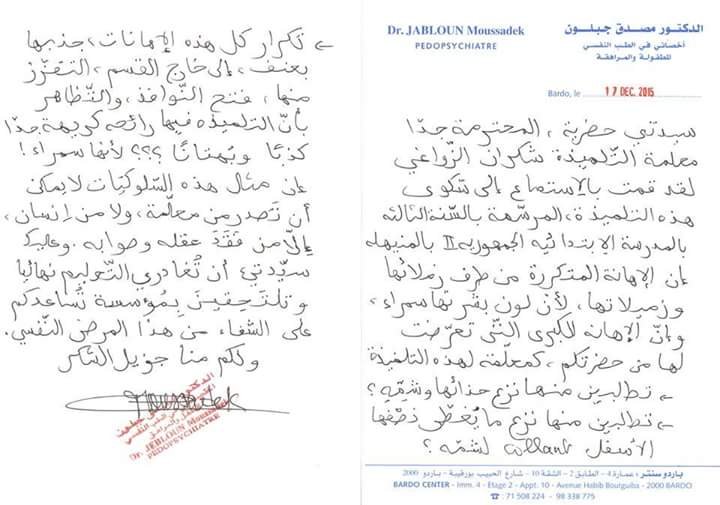 Dr. JABLOUN Moussadek
PEDOPSYCHIATRE
الدكتور مصدق جبلون
أخصائي في الطب النفسي
للطفولة والمراهقة
Bardo, le 17 DEC. 2015
سيدتي حضرية، المحترمة جدّا
معلمة التّلميذة شكران الزّواغي
لقد قمت بالاستماع إلى شكوى
هذه التلميذة، المرسّمة بالسّنة الثالثة
بالمدرسة الابتدائية الجمهورية II بالمنيهلة
إن الإهانة المتكررة من طرف زملائها
وزميلاتها، لأن لون بشرتها سمراء،
وإنّ الإهانة الكبرى التّي تعرّضت
لها من حضرتكم، كمعلّمة لهذه التلميذة
← تطلبين منها نزع حذائها وشمّه؟
← تطلبين منها نزع ما يُغطّي نصفها
الأسفل collant لشمّه؟
باردو سنتر، عمارة 4 - الطابق 2 - الشقة 10 - شارع الحبيب بورقيبة - باردو 2000
BARDO CENTER - Imm. 4 - Etage 2 - Appt. 10 - Avenue Habib Bourguiba - 2000 BARDO
☎ : 71 508 224 - 98 338 775
← تكرار كل هذه الإهانات، جذبها
بعنف، إلى خارج القسم، التقزّز
منها، فتح النّوافذ، والتّظاهر
بأنّ التلميذة فيها رائحة كريهة جدّا
كذبًا وبُهتانًا ؟؟؟ لأنها سمراء!
إن مثل هذه السّلوكيّات لا يمكن
أن تَصدر من معلّمة، ولا من إنسان،
إلاّ من فَقَدَ عقله وصوابه. وعليك
سيّدتي أن تُغادري التّعليم نهائيا
وتلتحقين بمُؤسسة تُساعدكم
على الشفاء من هذا المرض النّفسي.
ولكم منا جزيل الشكر
Moussadek
الدكتور مصدق جبلون
أخصائي في الطب النفسي
للطفولة والمراهقة
Dr. JABLOUN Moussadek
PEDOPSYCHIATRE